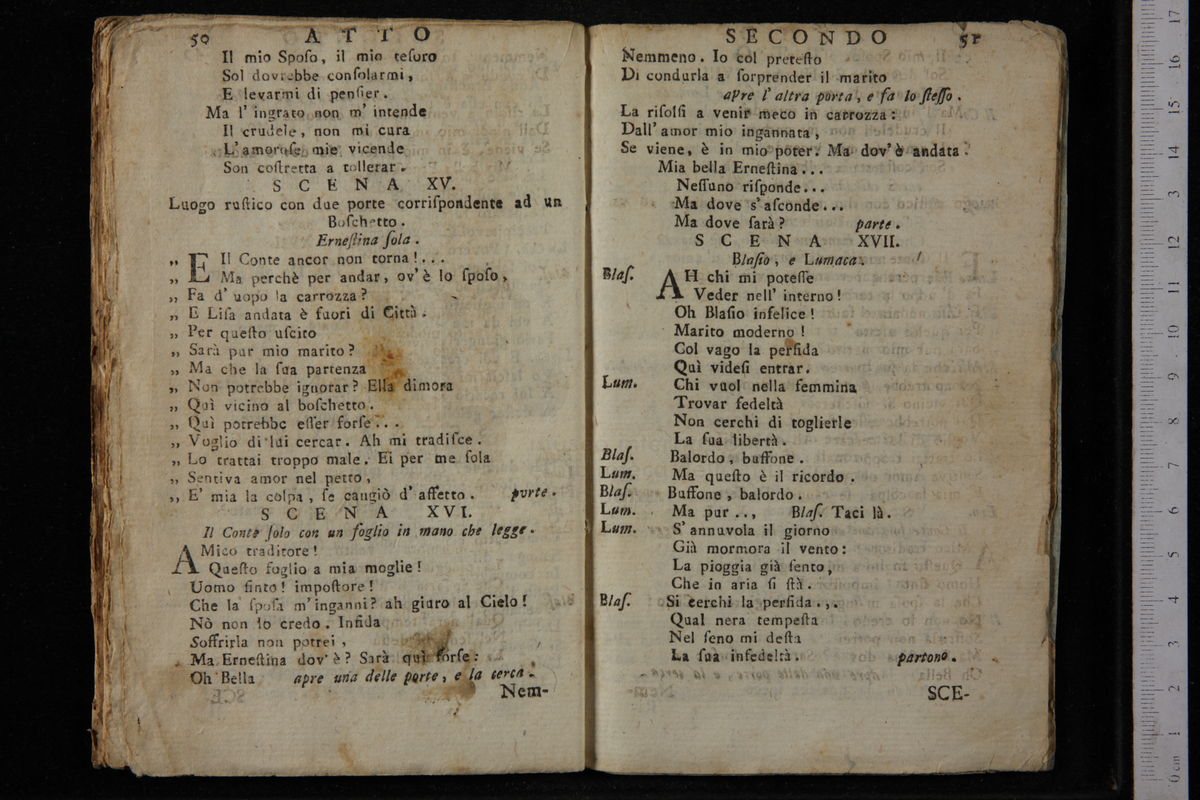 50 ATTO
Il mio Spoſo, il mio teſoro
Sol dovrebbe conſolarmi,
E levarmi di penſier.
Ma l' ingrato non m' intende
Il crudele, non mi cura
L' amoroſe mie vicende
Son coſtretta a tollerar.
SCENA XV.
Luogo ruſtico con due porte corriſpondente ad un
Boſchetto.
Erneſtina ſola.
„ E Il Conte ancor non torna!...
„ Ma perchè per andar, ov' è lo ſpoſo,
„ Fa d' uopo la carrozza?
„ E Liſa andata è fuori di Città.
„ Per queſto uſcito
„ Sarà pur mio marito?
„ Ma che la ſua partenza
„ Non potrebbe ignorar? Ella dimora
„ Quì vicino al boſchetto.
„ Quì potrebbe eſſer forſe...
„ Voglio di lui cercar. Ah mi tradiſce.
„ Lo trattai troppo male. Ei per me ſola
„ Sentiva amor nel petto,
„ E' mia la colpa, ſe cangiò d' affetto. pvrte.
SCENA XVI.
Il Conte ſolo con un foglio in mano che legge.
AMico traditore!
Queſto foglio a mia moglie!
Uomo finto! impoſtore!
Che la ſpoſa m' inganni? ah giuro al Cielo!
Nò non lo credo. Infida
Soffrirla non potrei,
Ma Erneſtina dov' è? Sarà quì forſe:
Oh Bella apre una delle porte, e la cerca.
Nem-
SECONDO 51
Nemmeno. Io col preteſto
Di condurla a ſorprender il marito
apre l' altra porta, e fa lo ſteſſo.
La riſolſi a venir meco in carrozza:
Dall' amor mio ingannata,
Se viene, è in mio poter. Ma dov' è andata.
Mia bella Erneſtina...
Neſſuno riſponde...
Ma dove s' aſconde...
Ma dove ſarà? parte.
SCENA XVII.
Blaſio, e Lumaca.
Blaſ. AH chi mi poteſſe
Veder nell' interno!
Oh Blaſio infelice!
Marito moderno!
Col vago la perfida
Quì videſi entrar.
Lum. Chi vuol nella femmina
Trovar fedeltà
Non cerchi di toglierle
La ſua libertà.
Blaſ. Balordo, buffone.
Lum. Ma queſto è il ricordo.
Blaſ. Buffone, balordo.
Lum. Ma pur.., Blaſ. Taci là.
Lum. S' annuvola il giorno
Già mormora il vento:
La pioggia già ſento,
Che in aria ſi ſtà.
Blaſ. Si cerchi la perfida.,.
Qual nera tempeſta
Nel ſeno mi deſta
La ſua infedeltà. partono.
SCE-